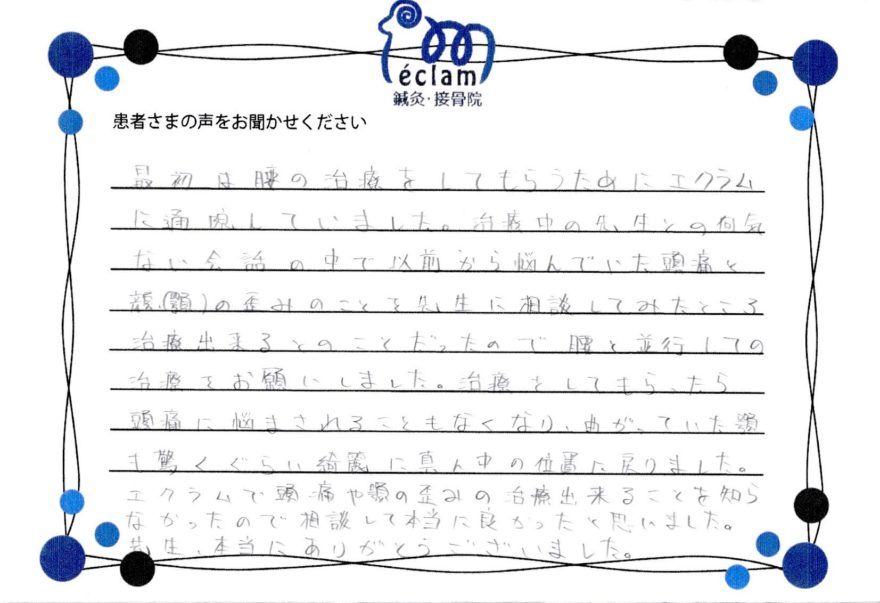 éclam
鍼灸・接骨院
患者さまの声をお聞かせください
最初は腰の治療をしてもらうためにエクラム
に通院していました。治療中の先生との何気
ない会話の中で以前から悩んでいた頭痛と
顔(顎)の歪みのことを先生に相談してみたところ
治療出来るとのことだったので腰と並行しての
治療をお願いしました。治療をしてもらったら
頭痛に悩まされることもなくなり、曲がっていた顎
も驚くぐらい綺麗に真ん中の位置に戻りました。
エクラムで頭痛や顎の歪みの治療出来ることを知ら
なかったので相談して本当に良かったと思いました。
先生、本当にありがとうございました。